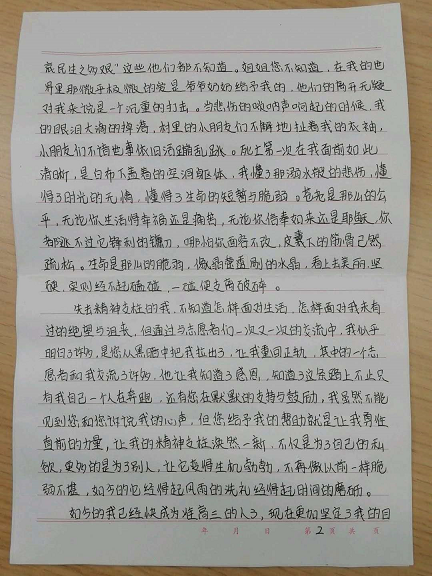 哀民生之多艰”这些他们都不知道。姐姐您不知道，在我的世
界里那微乎极微的爱是爷爷奶奶给予我的，他们的离开无疑
对我来说是一个沉重的打击。当悲伤的唢呐声响起的时候，我
的眼泪大滴的掉落，村里的小朋友们不解地扯着我的衣袖，
小朋友们不谙世事依旧活蹦乱跳。死亡第一次在我面前如此
清晰，是白布下盖着的空洞躯体，我懂了那溺水般的悲伤，懂
得了时光的无情，懂得了生命的短暂与脆弱。苍老是那么的公
平，无论你生活得幸福还是痛苦，无论你信奉如来还是耶稣，你
都逃不过它犀利的镰刀，哪怕你面容不改，皮囊下的筋骨已然
疏松。生命是那么的脆弱，像晶莹透剔的水晶，看上去美丽、坚
硬，实则经不起磕碰，一磕便支离破碎。
失去精神支柱的我，不知道怎样面对生活，怎样面对我未有
过的绝望与沮丧，但通过与志愿者们一次又一次的交流中，我似乎
明白了许多，是您从黑暗中把我拉出了，让我重回正轨，其中的一个志
愿者和我交流了许多，他让我知道了感恩，知道了这条路上不止只
有我自己一个人在奔跑，还有您在默默的支持与鼓励，我虽然不能
见到您和您诉说我的心声，但您给予我的帮助就是让我勇往
直前的力量，让我的精神支柱焕然一新，不仅是为了自己的私
欲，更多的是为了别人，让它变得生机勃勃，不再像以前一样脆
弱不堪，如今的它经得起风雨的洗礼经得起时间的磨砺。
如今的我已经快成为准高三的人了，现在更加坚定了我的目
年 月 日 第2页共 页